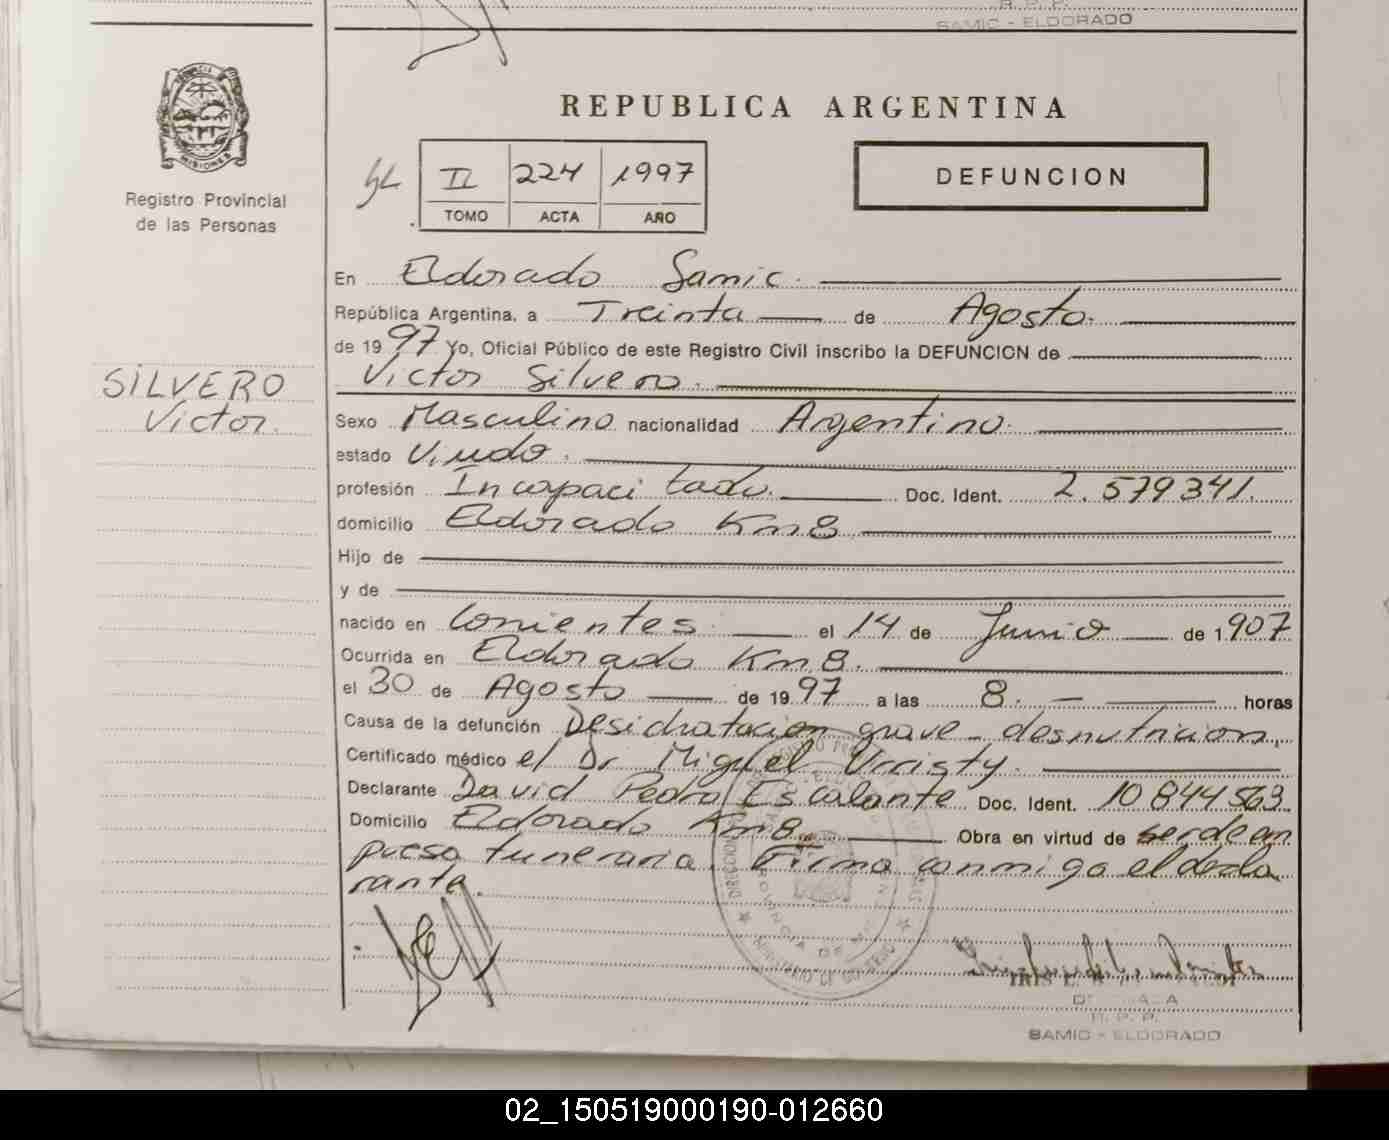 R. P. P.
SAMIC - ELDORADO
MISIONES
Registro Provincial
de las Personas
REPUBLICA ARGENTINA
II 224 1997
TOMO ACTA AÑO
DEFUNCION
SILVERO
Victor.
En Eldorado Samic.
República Argentina, a Treinta de Agosto.
de 1997 Yo, Oficial Público de este Registro Civil inscribo la DEFUNCION de
Victor Silvero.
Sexo Masculino nacionalidad Argentino.
estado Viudo.
profesión Incapacitado. Doc. Ident. 2.579341.
domicilio Eldorado Km8
Hijo de
y de
nacido en Corrientes el 14 de Junio de 1.907
Ocurrida en Eldorado Km 8.
el 30 de Agosto de 1997 a las 8. - horas
Causa de la defunción Desidratacion grave - desnutricion.
Certificado médico el Dr Miguel Urristy.
Declarante David Pedro Escalante Doc. Ident. 10844563
Domicilio Eldorado Km8 Obra en virtud de ser de em
presa funeraria. Firma conmigo el decla
rante.
MINISTERIO DE GOBIERNO
PROVINCIA DE
IRIS
R. P. P.
SAMIC - ELDORADO
02_150519000190-012660